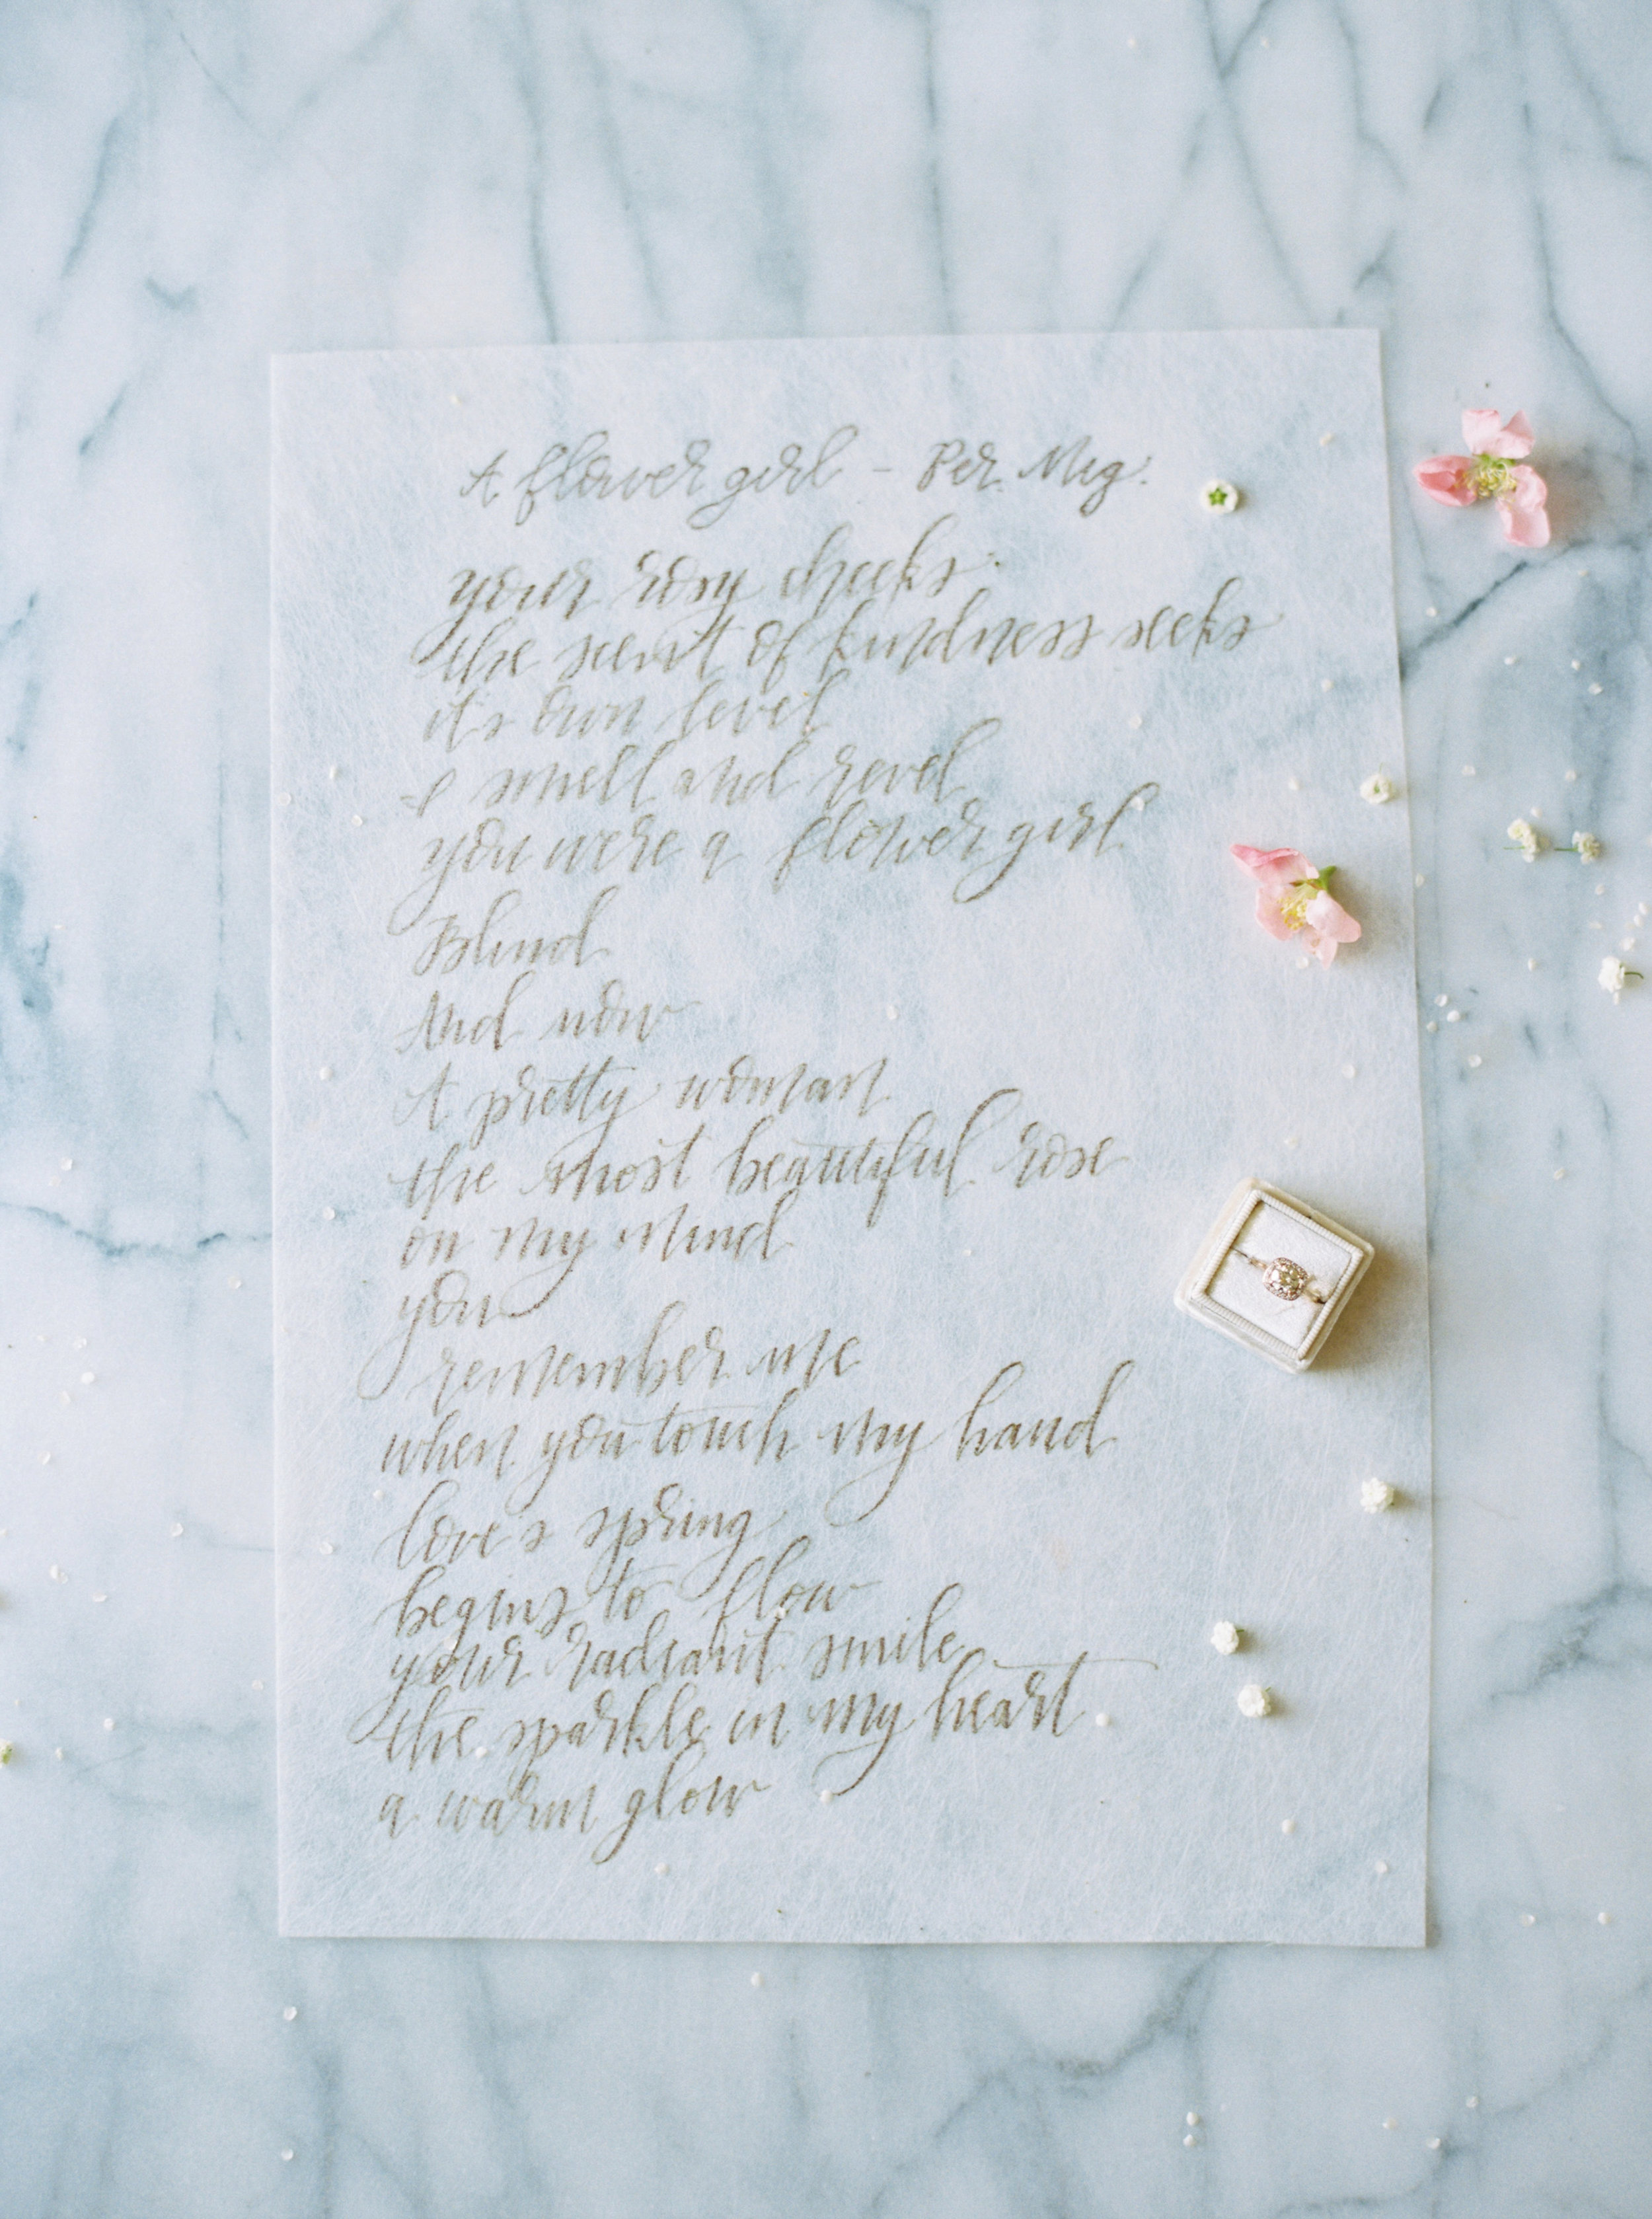 A flower girl - Per. Meg.
your rosy cheeks.
the scent of kindness seeks
it's own level
I smell and revel
you were a flower girl
Blind
And now
A pretty woman
the most beautiful rose
on my mind
you
remember me
when you touch my hand
love's spring
begins to flow
your radiant smile
the sparkle in my heart
a warm glow